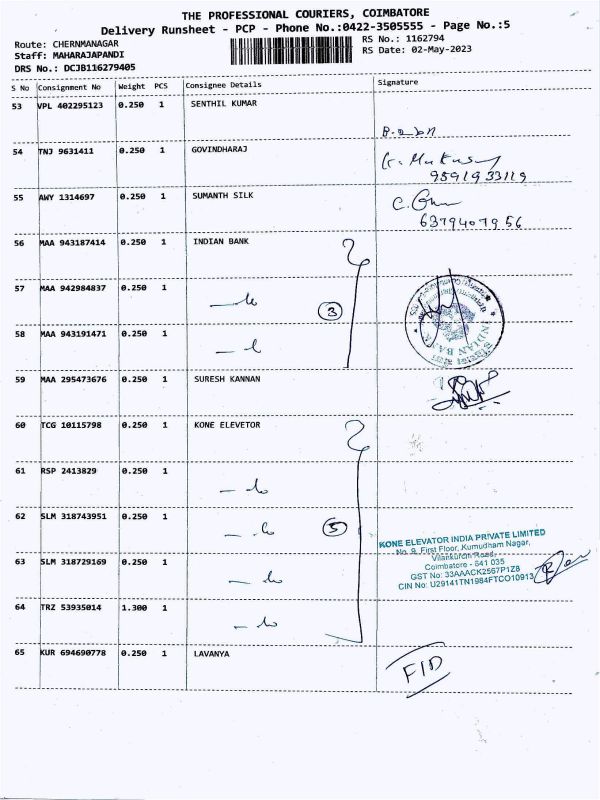 THE PROFESSIONAL COURIERS, COIMBATORE
Delivery Runsheet - PCP - Phone No.:0422-3505555 - Page No.:5
Route: CHERNMANAGAR
RS No.: 1162794
Staff: MAHARAJAPANDI
RS Date: 02-May-2023
DRS No.: DCJB116279405
S No Consignment No Weight PCS Consignee Details Signature
53 VPL 402295123 0.250 1 SENTHIL KUMAR
54 TNJ 9631411 0.250 1 GOVINDHARAJ
9591933119
55 AWY 1314697 0.250 1 SUMANTH SILK
6379407956
56 MAA 943187414 0.250 1 INDIAN BANK
57 MAA 942984837 0.250 1
3
INDIAN BANK
58 MAA 943191471 0.250 1
59 MAA 295473676 0.250 1 SURESH KANNAN
60 TCG 10115798 0.250 1 KONE ELEVETOR
61 RSP 2413829 0.250 1
62 SLM 318743951 0.250 1
5
KONE ELEVATOR INDIA PRIVATE LIMITED
No. 9, First Floor, Kumudham Nagar,
Vilankurichi Road,
Coimbatore - 641 035
GST No: 33AAACK2567P1Z8
CIN No: U29141TN1984FTCO10913
63 SLM 318729169 0.250 1
64 TRZ 53935014 1.300 1
65 KUR 694690778 0.250 1 LAVANYA
FID